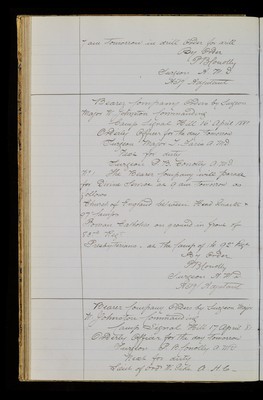 am tomorrow in drill Order for drill
By Order
Surgeon A. M. D
Actg Adjutant
Bearer Company Orders by Surgeon
Major W. Johnston Commanding
Camp Signal Hill 16 April 1881
Orderly Officer for the day tomorrow
Surgeon Major
Next for duty
Surgeon P. B. Conolly A M D
The Bearer Company will parade
for Divine Service at 9 am tomorrow as
follows
Church of England between Head Quarters
Roman Catholics on ground in front of
Regt
Presbyterians at the Camp of the 92 Regt
By Order
PB Conolly
Surgeon A M D
Actg Adjutant
Bearer Company Orders by Surgeon Major
W. Johnston Commanding
Camp Signal Hill 17 April 8
Orderly Officer for the day tomorrow
Surgeon P. B. Conolly A M D
Next for duty
Lieut of Ord